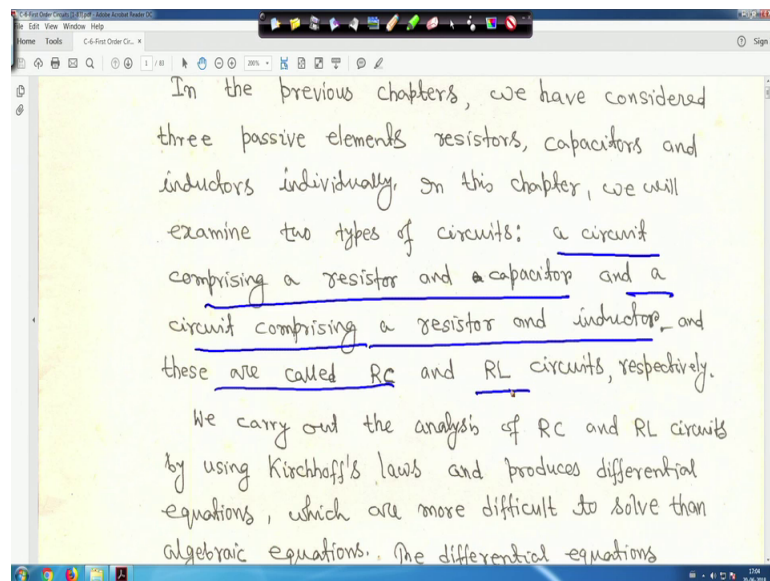 C-6-First Order Circuits [1-83].pdf - Adobe Acrobat Reader DC
File Edit View Window Help
Home Tools C-6-First Order Cir... × Sign
1 / 83 200%
In the previous chapters, we have considered
three passive elements resistors, capacitors and
inductors individually. In this chapter, we will
examine two types of circuits: a circuit
comprising a resistor and a capacitor and a
circuit comprising a resistor and inductor, and
these are called RC and RL circuits, respectively.
We carry out the analysis of RC and RL circuits
by using Kirchhoff's laws and produces differential
equations, which are more difficult to solve than
algebraic equations. The differential equations
17:04